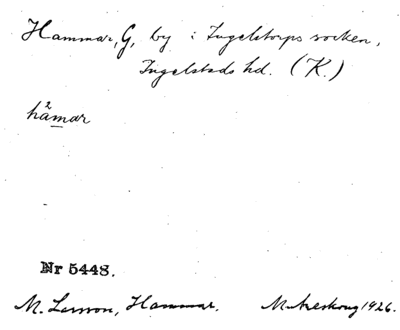 Hammar, G, by i Ingelstorps socken,
Ingelstads hd. (K.)
hamar
2
Nr 5448.
M. Larsson, Hammar. M. Areskoug 1926.